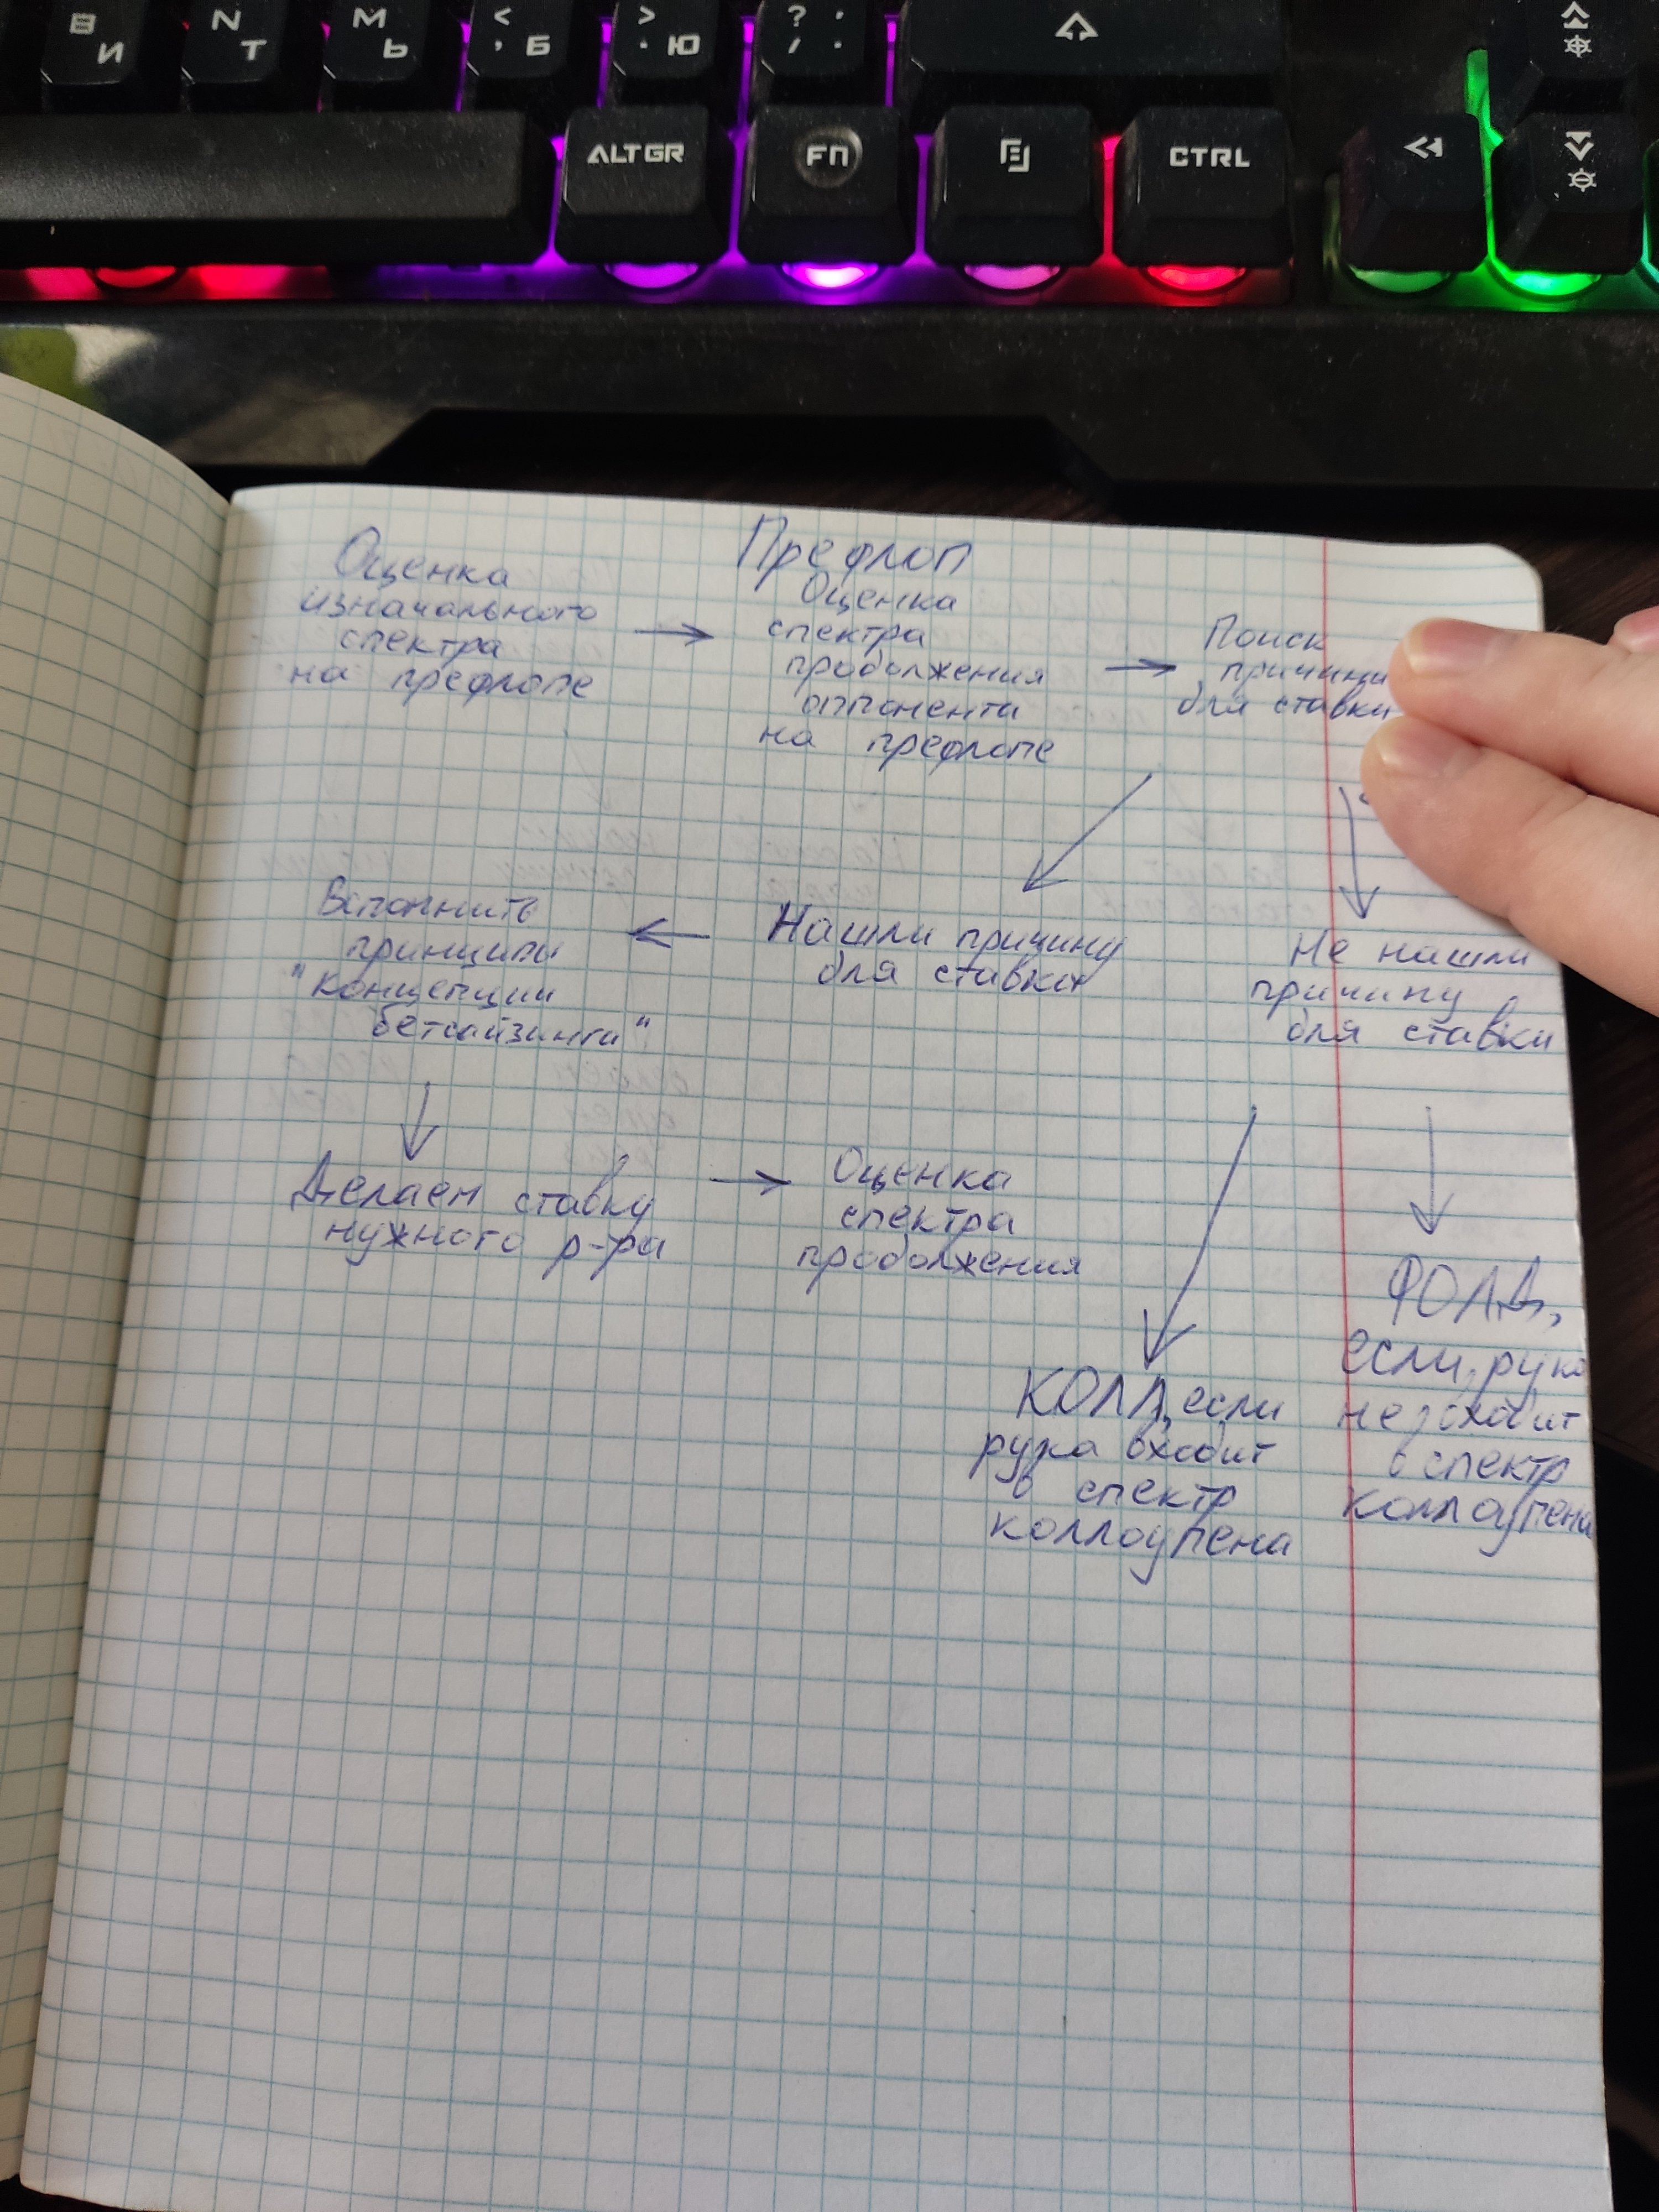 В И
N Т
М Ь
< , Б
> . Ю
? / : .
ALTGR
FN
CTRL
Префлоп
Оценка
изначального
спектра
на префлопе
Оценка
спектра
продолжения
оппонента
на префлопе
Поиск
причины
для ставки
Нашли причину
для ставки
Не нашли
причину
для ставки
Вспомнить
принципы
"Концепции
бетсайзинга"
Делаем ставку
нужного р-ра
Оценка
спектра
продолжения
КОЛЛ, если
рука входит
в спектр
коллоупена
ФОЛД,
если рука
не входит
в спектр
коллоупена